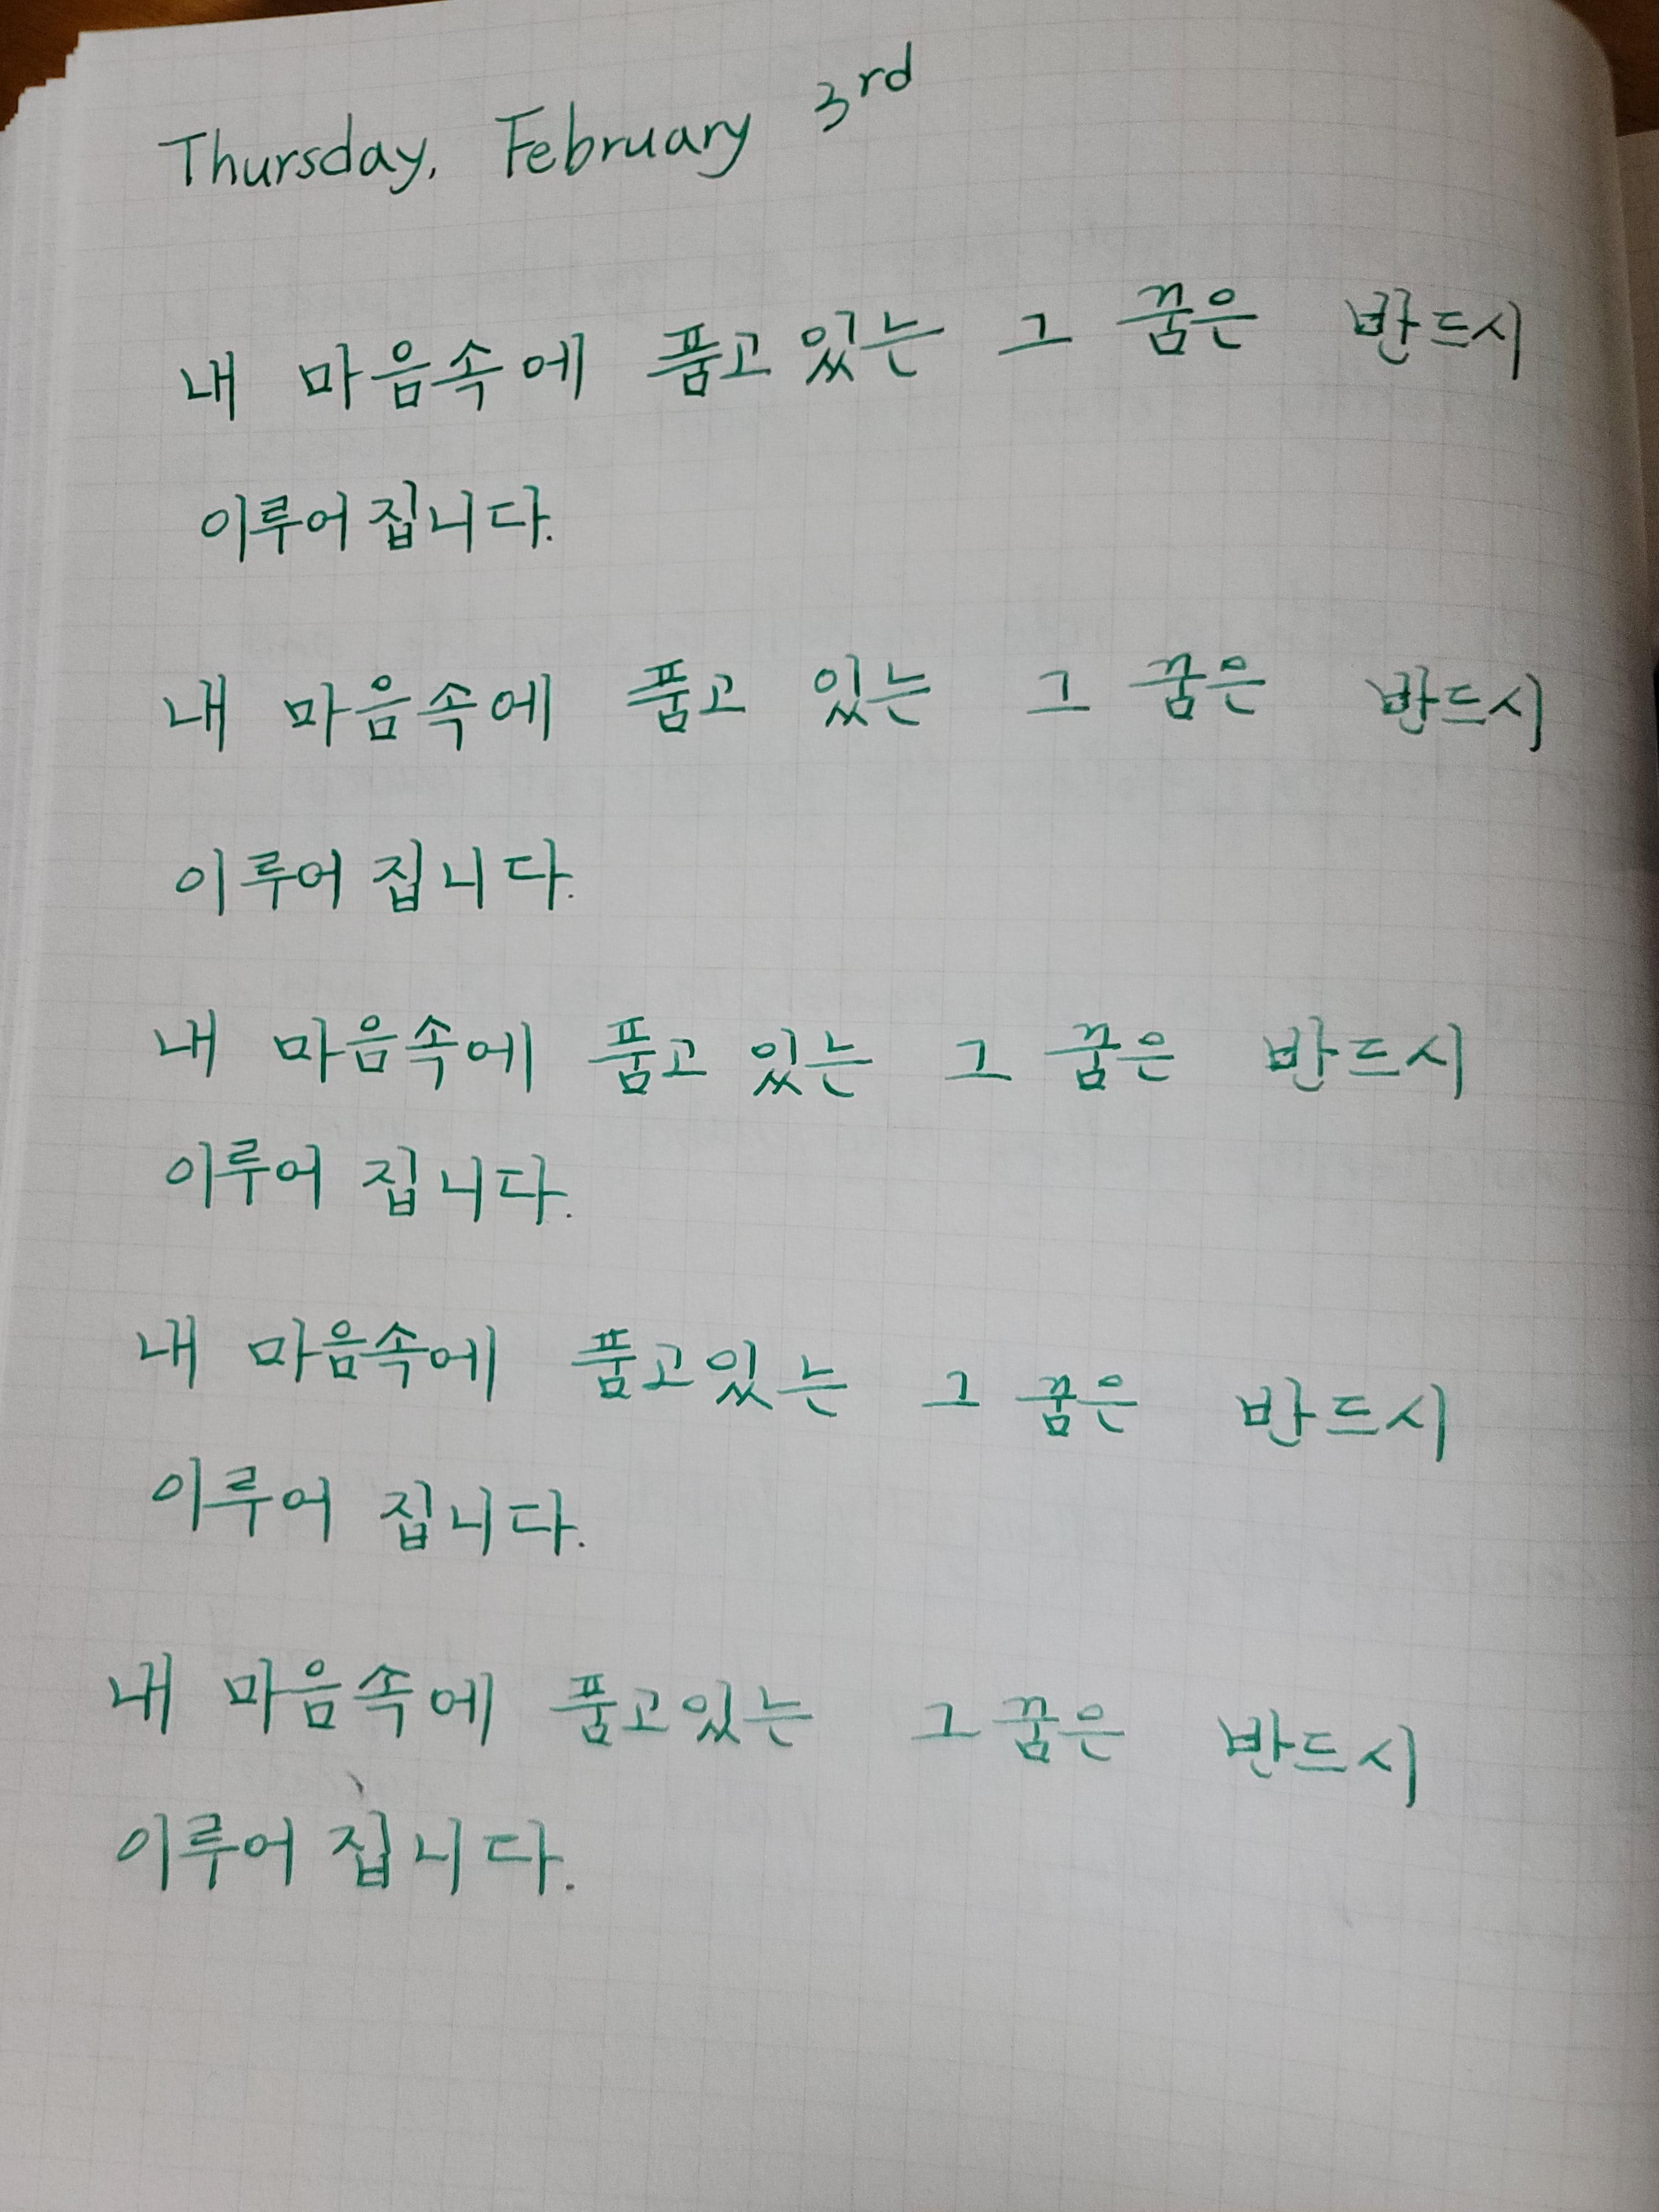 Thursday, February 3rd
내 마음속에 품고 있는 그 꿈은 반드시
이루어 집니다.
내 마음속에 품고 있는 그 꿈은 반드시
이루어 집니다.
내 마음속에 품고 있는 그 꿈은 반드시
이루어 집니다.
내 마음속에 품고있는 그 꿈은 반드시
이루어 집니다.
내 마음속에 품고있는 그 꿈은 반드시
이루어 집니다.